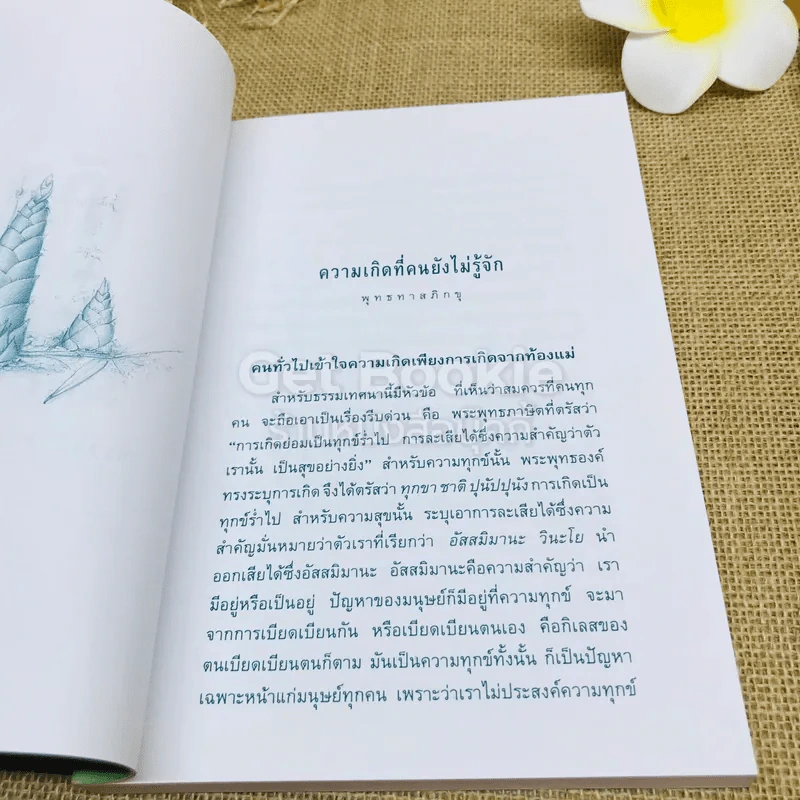 ความเกิดที่คนยังไม่รู้จัก
พุทธทาสภิกขุ
คนทั่วไปเข้าใจความเกิดเพียงการเกิดจากท้องแม่
Get Bookie
ร้านหนังสือบุ๊คกี้
สำหรับธรรมเทศนานี้มีหัวข้อ ที่เห็นว่าสมควรที่คนทุก
คน จะถือเอาเป็นเรื่องรีบด่วน คือ พระพุทธภาษิตที่ตรัสว่า
“การเกิดย่อมเป็นทุกข์ร่ำไป การละเสียได้ซึ่งความสำคัญว่าตัว
เรานั้น เป็นสุขอย่างยิ่ง” สำหรับความทุกข์นั้น พระพุทธองค์
ทรงระบุการเกิด จึงได้ตรัสว่า ทุกขา ชาติ ปุนัปปุนัง การเกิดเป็น
ทุกข์ร่ำไป สำหรับความสุขนั้น ระบุเอาการละเสียได้ซึ่งความ
สำคัญมั่นหมายว่าตัวเราที่เรียกว่า อัสสมิมานะ วินะโย นำ
ออกเสียได้ซึ่งอัสสมิมานะ อัสสมิมานะคือความสำคัญว่า เรา
มีอยู่หรือเป็นอยู่ ปัญหาของมนุษย์ก็มีอยู่ที่ความทุกข์ จะมา
จากการเบียดเบียนกัน หรือเบียดเบียนตนเอง คือกิเลสของ
ตนเบียดเบียนตนก็ตาม มันเป็นความทุกข์ทั้งนั้น ก็เป็นปัญหา
เฉพาะหน้าแก่มนุษย์ทุกคน เพราะว่าเราไม่ประสงค์ความทุกข์